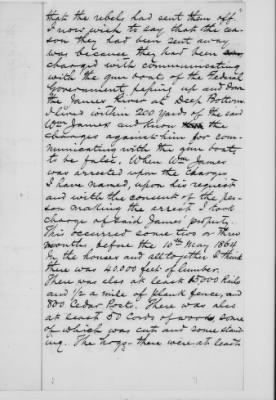 that the rebels had sent them off.
I now wish to say that the rea-
son they had been sent away
was because they had been
charged with communicating
with the gun boats of the Federal
Government paping up and down
the James River at Deep Bottom.
I lived within 200 yards of the said
Wm James and know the
charges against him for com-
municating with the gun boats,
to be false. When Wm James
was arrested upon the charges
I have named, upon his request
and with the consent of the per-
son making the arrest I took
charge of said James' property.
This occurred some two or three
months, before the 10th May 1864
In the houses and all together I think
there was 40,000 feet of lumber.
There was also at least 15000 Rails
and 1/2 a mile of plank fence, and
800 Cedar Posts. There was also
at least 50 Cords of wood, some
of which was cut and some stand
ing. The hogs there were at least